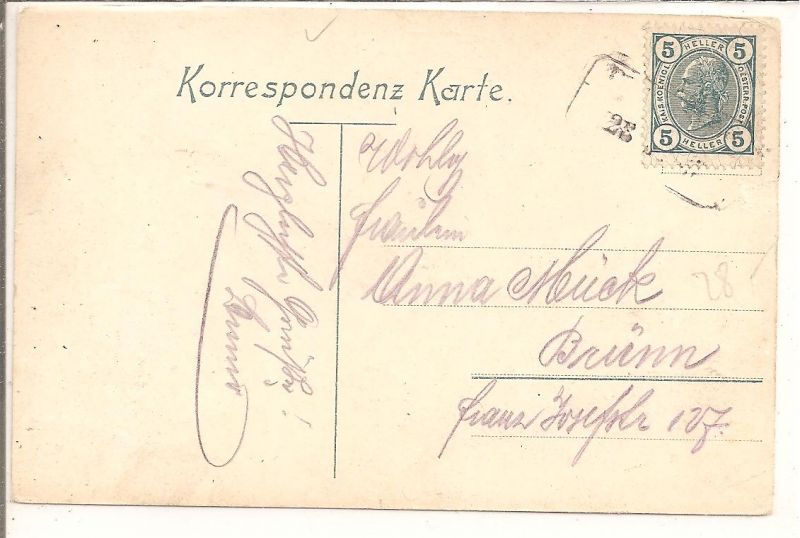 Korrespondenz Karte.
5 HELLER 5
KAIS. KOENIGL. OESTERR. POST
5 HELLER 5
28
Wohlg
Fräulein
Anna Mück
Brünn
Franz Josefstr 127.
28
Herzlichste Grüße!